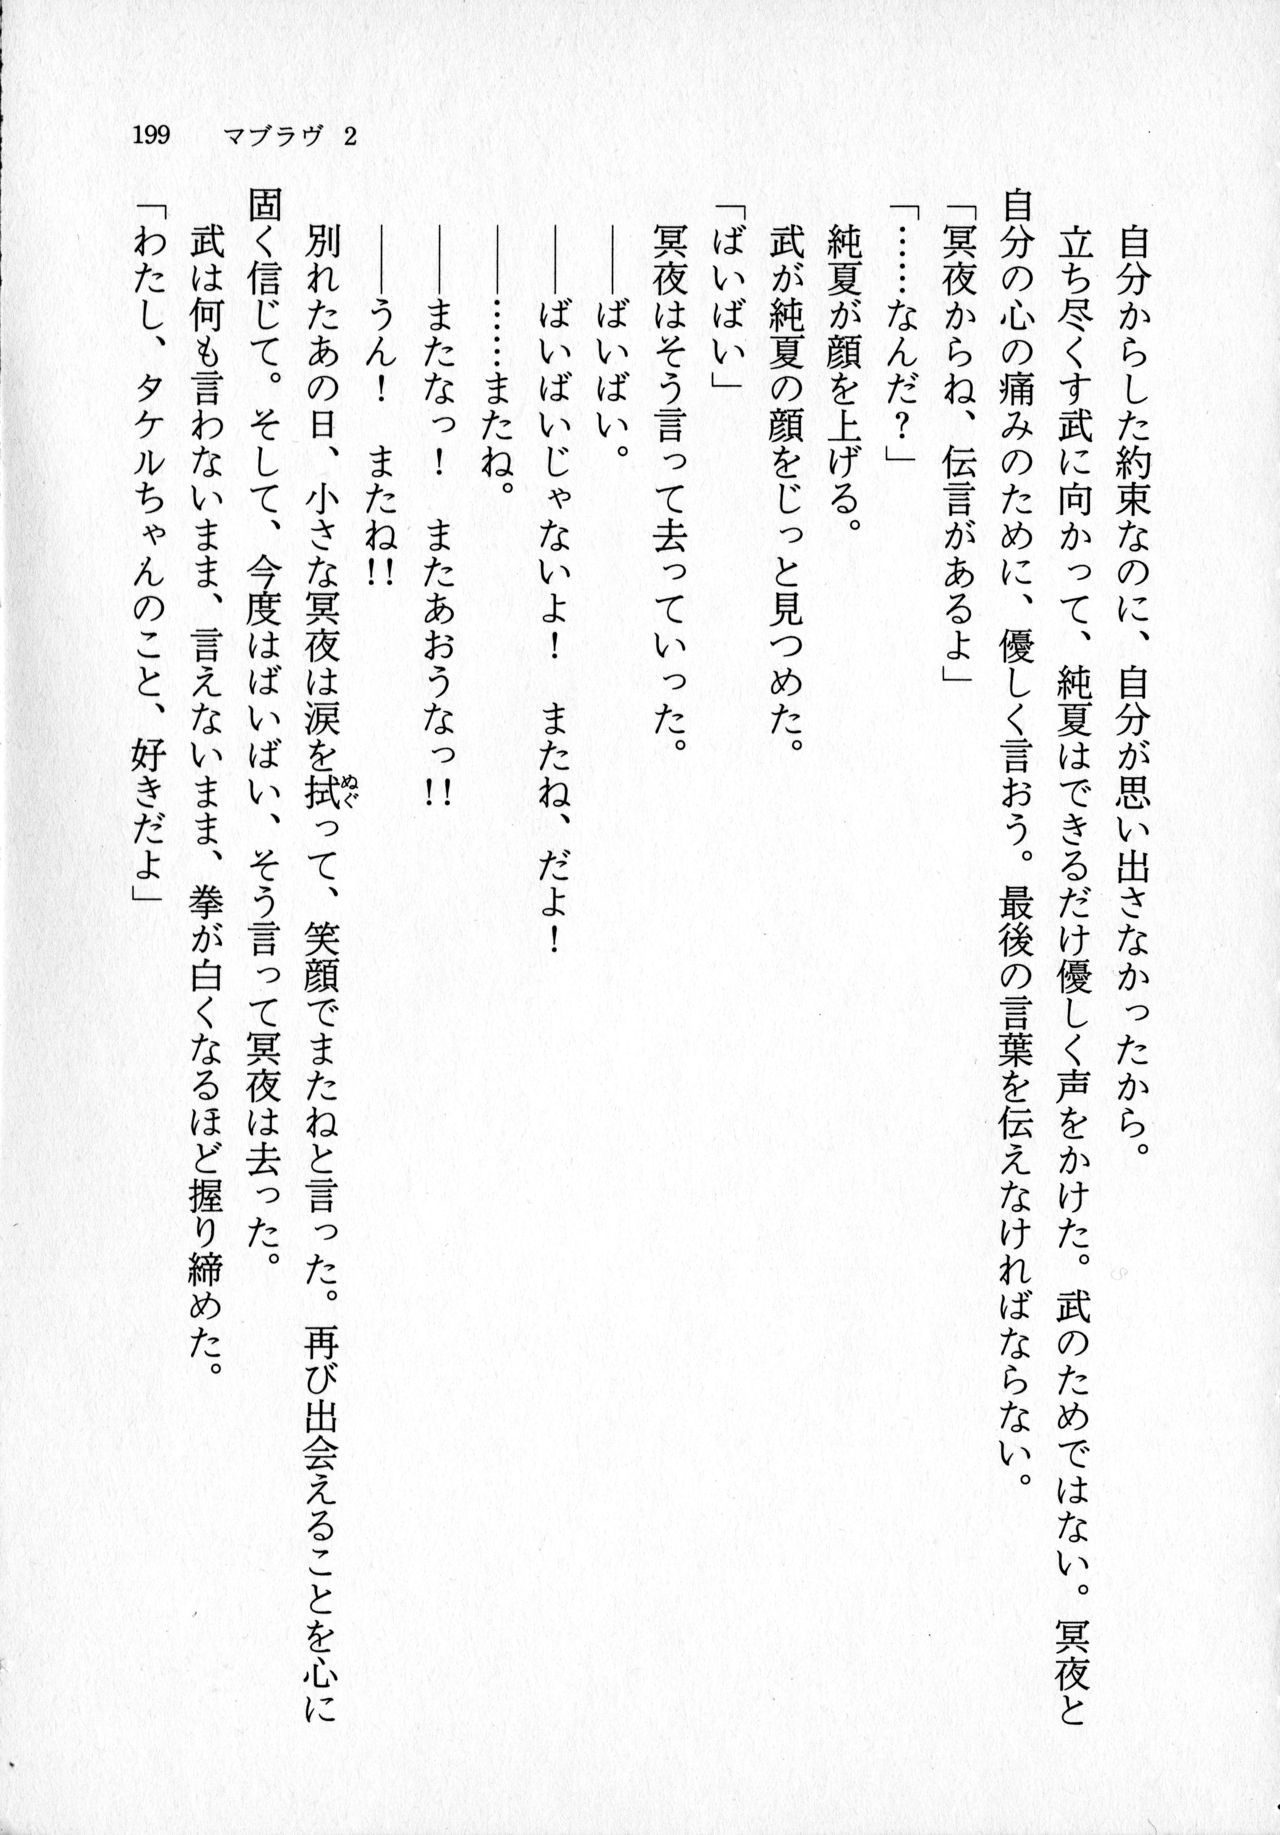 199 マブラヴ 2
自分からした約束なのに、自分が思い出さなかったから。
立ち尽くす武に向かって、純夏はできるだけ優しく声をかけた。武のためではない。冥夜と
自分の心の痛みのために、優しく言おう。最後の言葉を伝えなければならない。
「冥夜からね、伝言があるよ」
「……なんだ？」
純夏が顔を上げる。
武が純夏の顔をじっと見つめた。
「ばいばい」
冥夜はそう言って去っていった。
――ばいばい。
――ばいばいじゃないよ！　またね、だよ！
――……またね。
――またなっ！　またあおうなっ!!
――うん！　またね!!
別れたあの日、小さな冥夜は涙を拭って、笑顔でまたねと言った。再び出会えることを心に
ぬぐ
固く信じて。そして、今度はばいばい、そう言って冥夜は去った。
武は何も言わないまま、言えないまま、拳が白くなるほど握り締めた。
「わたし、タケルちゃんのこと、好きだよ」